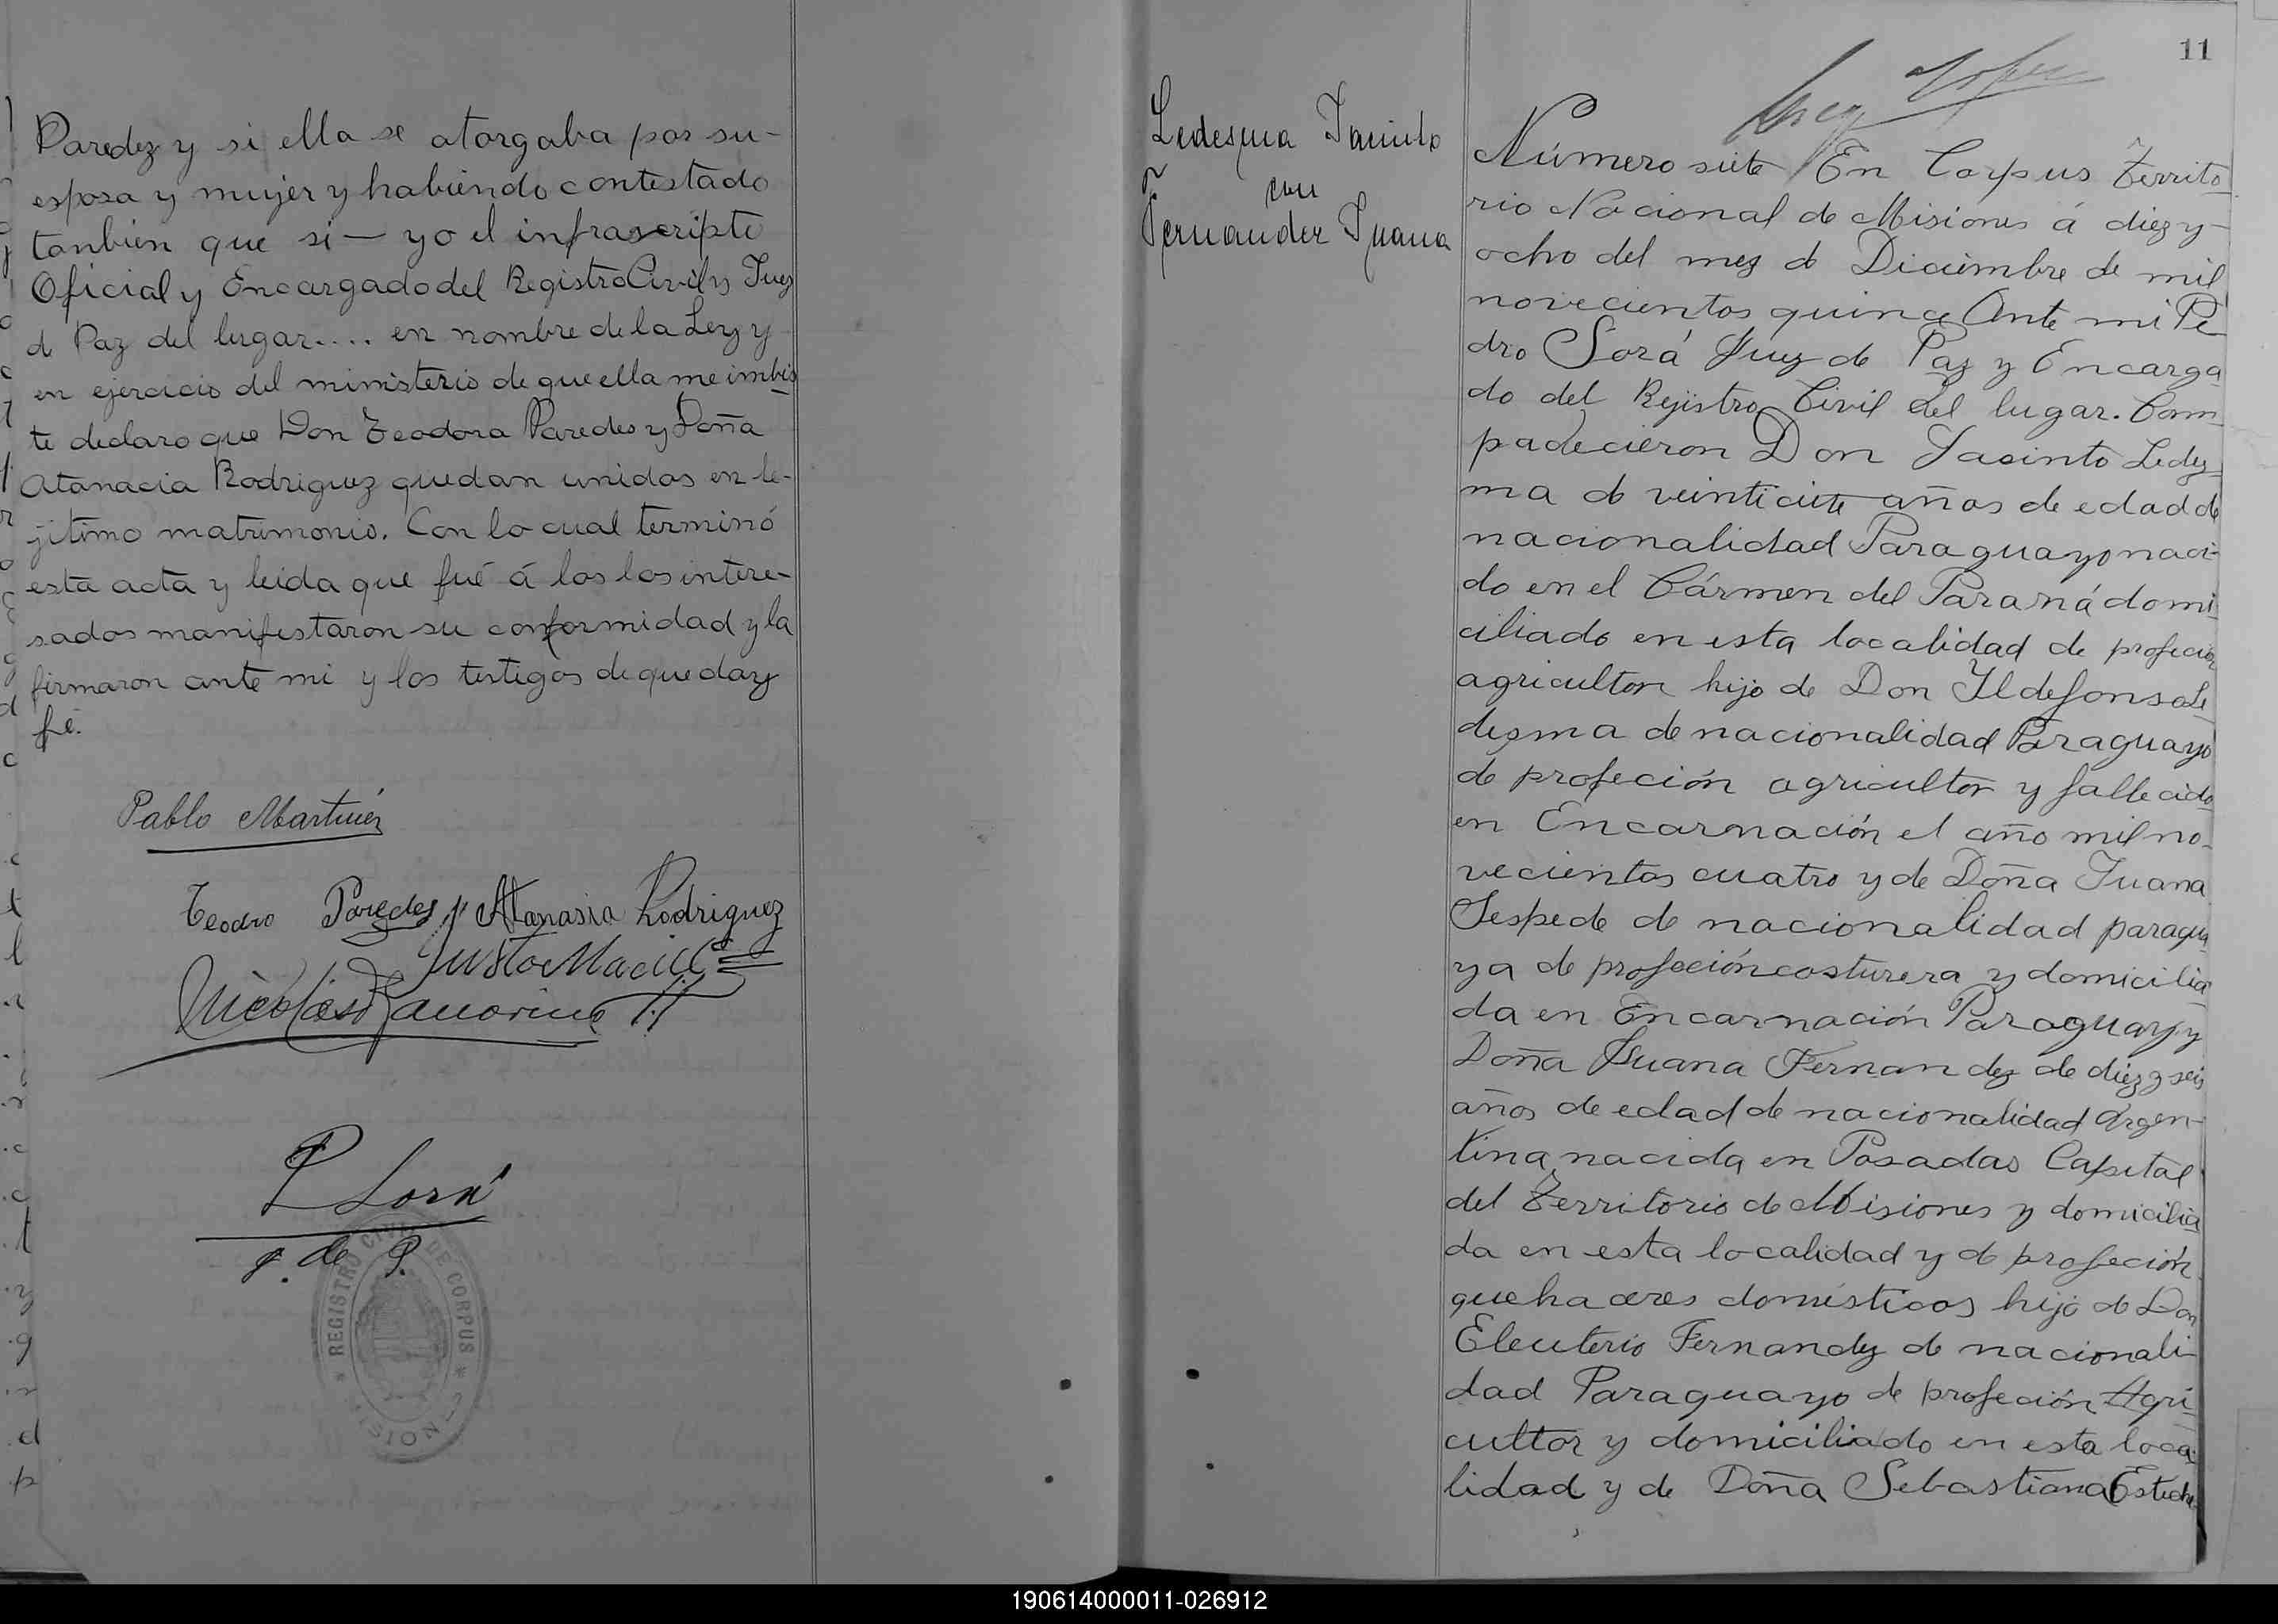 Paredez y si ella se atorgaba por su-
esposa y mujer y habiendo contestado
tanbien que si — yo el infrascripto
Oficial y Encargado del Registro Civil y Juez
de Paz del lugar.... en nombre de la Ley y
en ejercicio del ministerio de que ella me imbis
te declaro que Don Teodora Paredes y Doña
Atanacia Rodriguez quedan unidos en le-
jitimo matrimonio. Con lo cual terminó
esta acta y leida que fué á los los intere-
sados manifestaron su conformidad y la
firmaron ante mi y los testigos de que doy
fé.
Pablo Martinez
Teodro Paredes y Atanasia Rodriguez
Justo Maciel
Nicolas
P Sorá
J. de P.
REGISTRO CIVIL DE CORPUS * MISIONES *
11
Ledesma Jacinto
con
Fernandez Juana
Lopez
Número siete En Corpus Territo-
rio Nacional de Misiones á diez y-
ocho del mez de Diciembre de mil
novecientos quince Ante mi Pe
dro Sorá Juez de Paz y Encarga-
do del Rejistro Civil del lugar. Com-
padecieron Don Jacinto Ledez-
ma de veinticiete años de edad de
nacionalidad Paraguayo naci-
do en el Cármen del Paraná domi-
ciliado en esta localidad de profecion
agricultor hijo de Don Yldefonso Le-
desma de nacionalidad Paraguayo
de profeción agricultor y fallecido
en Encarnación el año mil no-
vecientos cuatro y de Doña Juana
Sespede de nacionalidad paragua-
ya de profeción costurera y domicilia-
da en Encarnación Paraguay y
Doña Juana Fernandez de diez y seis
años de edad de nacionalidad Argen-
tina nacida en Posadas Capital
del Territorio de Misiones y domicilia
da en esta localidad y de profeción
quehaceres domésticos hijo de Don
Eleuterio Fernandez de nacionali-
dad Paraguayo de profeción Agri-
cultor y domiciliado en esta loca-
lidad y de Doña Sebastiana
190614000011-026912